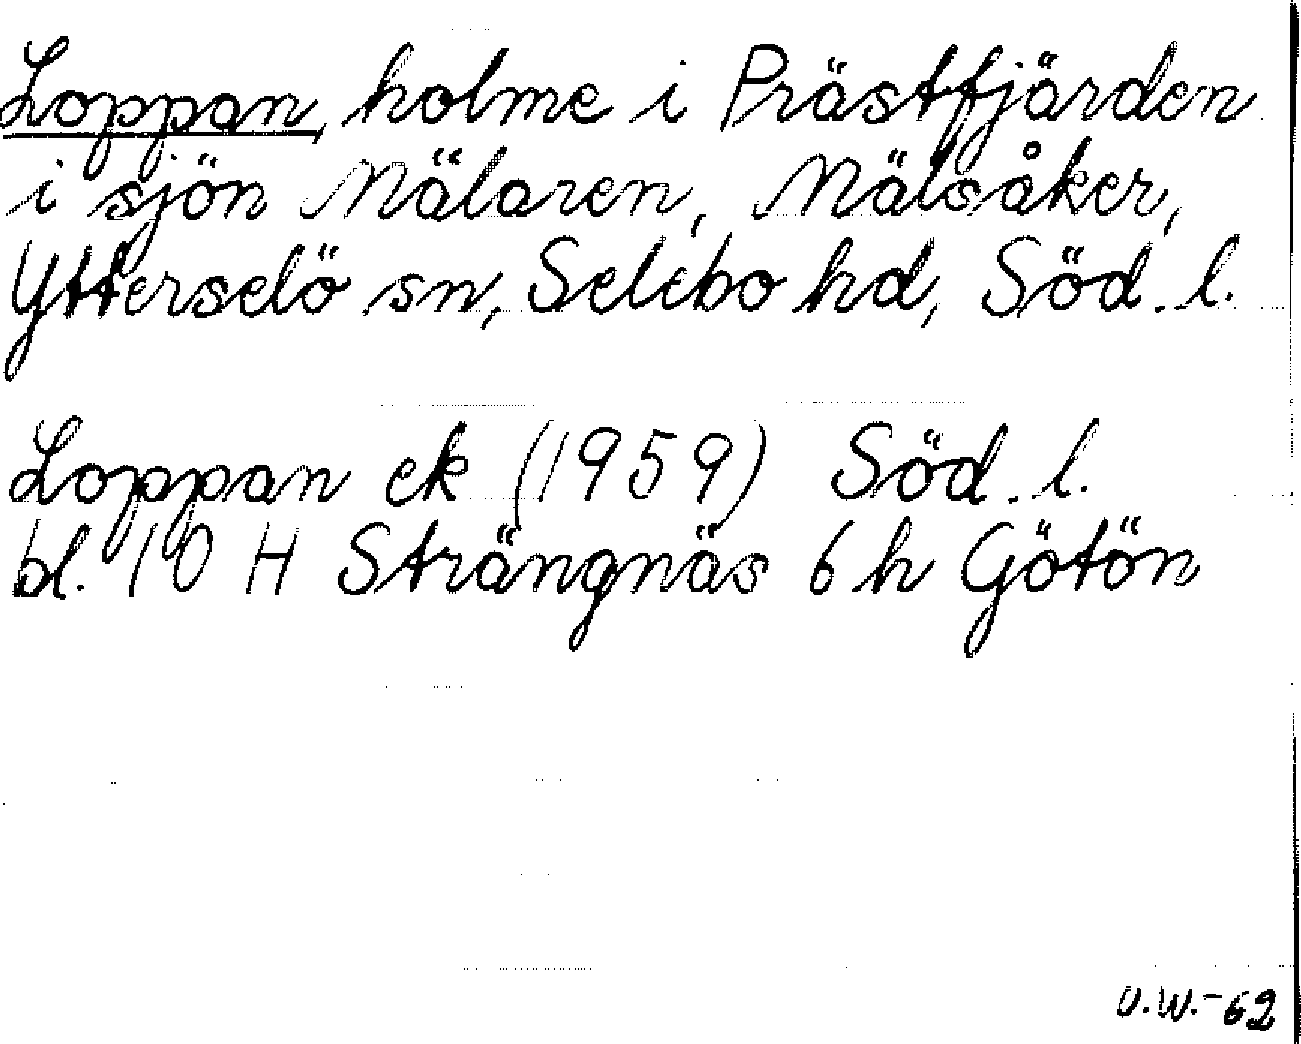 Loppan, holme i Prästfjärden
i sjön Mälaren, Mälsåker,
Ytterselö sn, Selebo hd, Söd. l.
Loppan ek (1959) Söd. l.
bl. 10 H Strängnäs 6 h Götön
U.W.-62